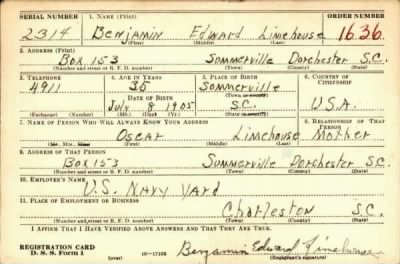 SERIAL NUMBER 1. NAME (Print) ORDER NUMBER
2314 Benjamin Edward Limehouse 1636
(First) (Middle) (Last)
2. ADDRESS (Print)
Box 153 Sommerville Dorchester S.C.
(Number and street or R. F. D. number) (Town) (County) (State)
3. TELEPHONE 4. AGE IN YEARS 5. PLACE OF BIRTH 6. COUNTRY OF CITIZENSHIP
4911 35 Sommerville
DATE OF BIRTH (Town or county)
July 8 1905 S.C. U.S.A.
(Exchange) (Number) (Mo.) (Day) (Yr.) (State or country)
7. NAME OF PERSON WHO WILL ALWAYS KNOW YOUR ADDRESS 8. RELATIONSHIP OF THAT PERSON
Oscar Limehouse Mother
(First) (Middle) (Last)
9. ADDRESS OF THAT PERSON
Box 153 Sommerville Dorchester S.C.
(Number and street or R. F. D. number) (Town) (County) (State)
10. EMPLOYER'S NAME
U.S. Navy Yard
11. PLACE OF EMPLOYMENT OR BUSINESS
Charleston S.C.
(Number and street or R. F. D. number) (Town) (County) (State)
I AFFIRM THAT I HAVE VERIFIED ABOVE ANSWERS AND THAT THEY ARE TRUE.
REGISTRATION CARD
D. S. S. Form 1 (over) Benjamin Edward Limehouse
(Registrant's signature)